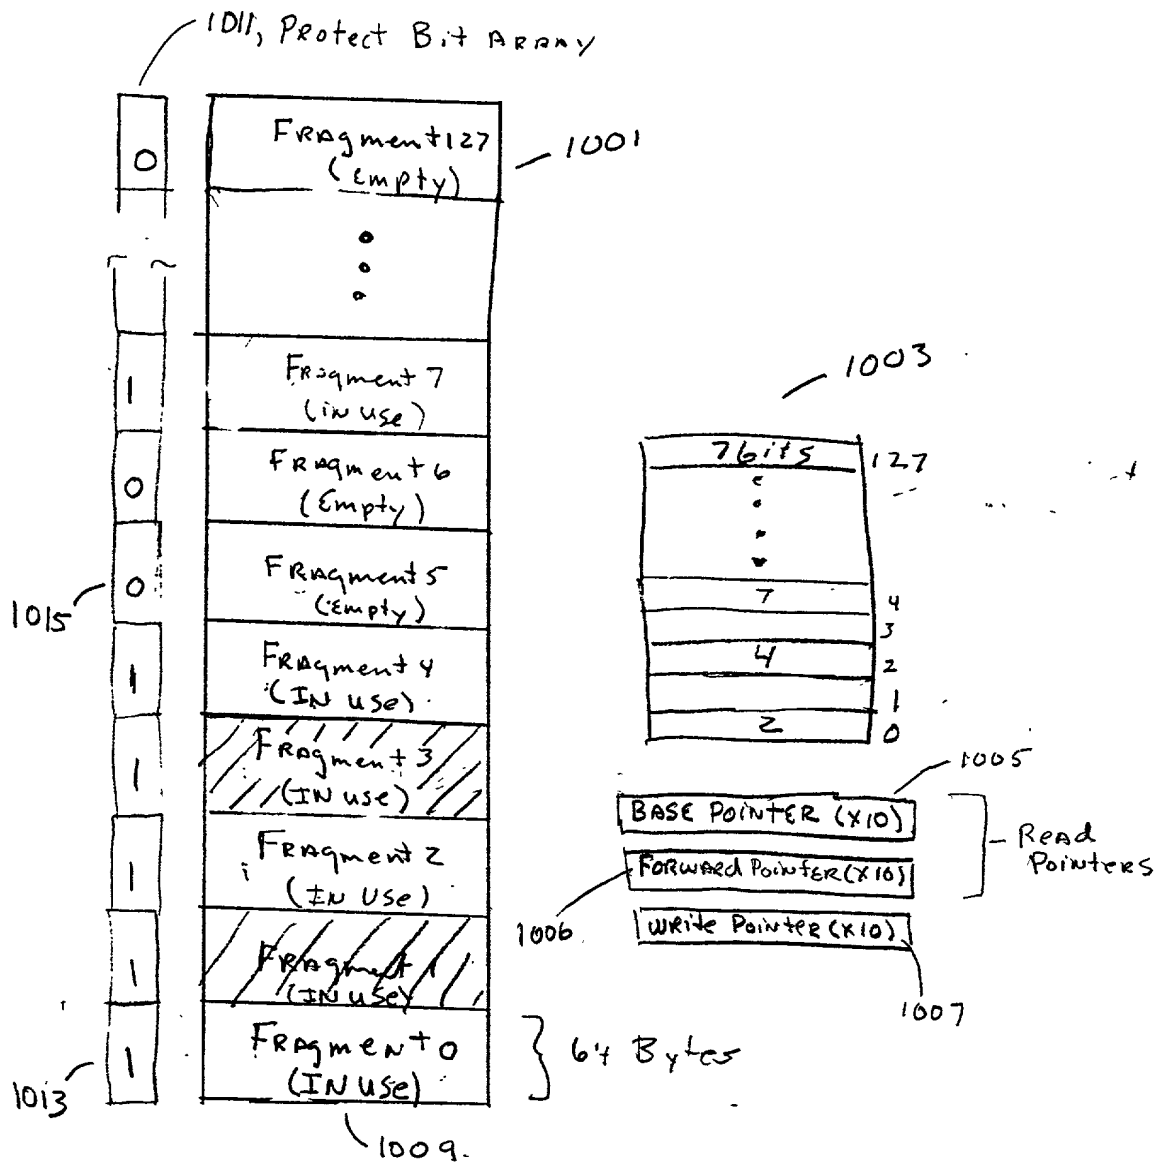 1011, Protect Bit Array
0
Fragment 127
(Empty)
1001
1
Fragment 7
(in use)
0
Fragment 6
(Empty)
0
Fragment 5
(Empty)
1015
1
Fragment 4
(IN use)
1
Fragment 3
(IN use)
1
Fragment 2
(IN use)
1
Fragment 1
(IN use)
1
Fragment 0
(IN use)
1013
64 Bytes
1009.
1003
7 bits
127
7
4
3
4
2
1
2
0
1005
BASE POINTER (X10)
FORWARD POINTER (X10)
Read
Pointers
1006
Write Pointer (X10)
1007